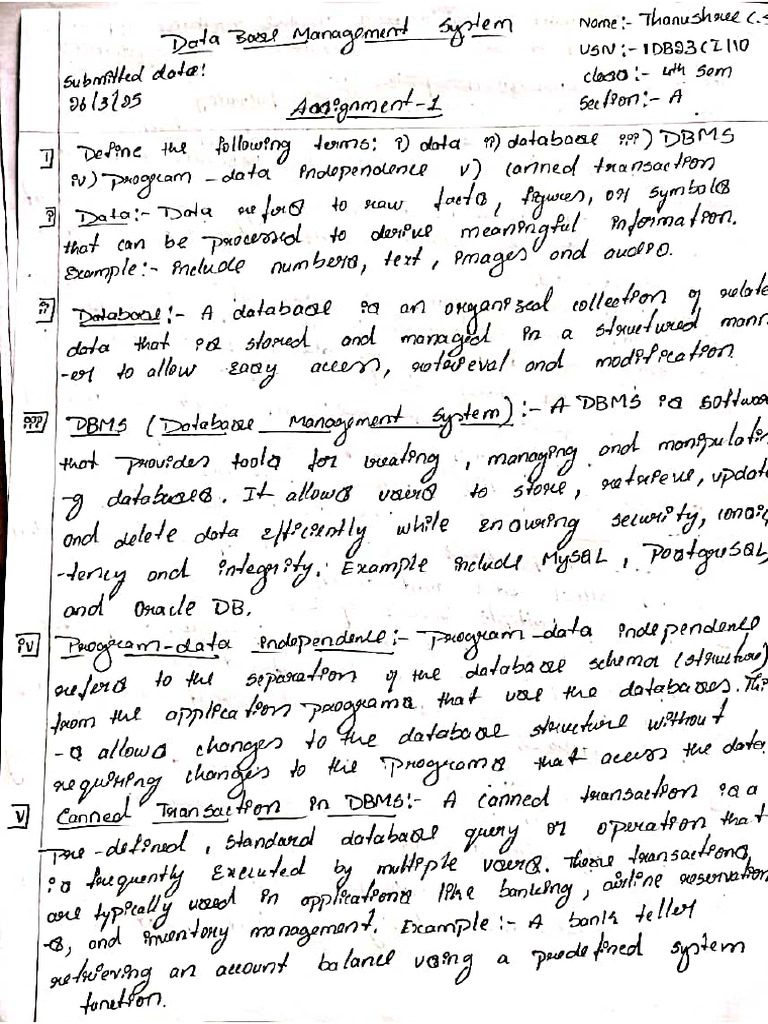 Data Base Management System
Name:- Thanushree C.S
USN:- 1DB23CI110
Submitted date:
class:- 4th Sem
26/3/25
Section:- A
Assignment-1
1) Define the following terms: i) data ii) database iii) DBMS
iv) program-data independence v) canned transaction
i) Data:- Data refers to raw facts, figures, or symbols
that can be processed to derive meaningful information.
Example:- include numbers, text, images and audio.
ii) Database:- A database is an organized collection of relate
data that is stored and managed in a structured mann
-er to allow easy access, retrieval and modification.
iii) DBMS (Database Management System):- A DBMS is softwar
that provides tools for creating, managing and manipulatin
-g databases. It allows users to store, retrieve, update
and delete data efficiently while ensuring security, consis
-tency and integrity. Example include MySQL, PostgreSQL,
and Oracle DB.
iv) Program-data independence:- Program-data independence
refers to the separation of the database schema (structure)
from the application programs that use the databases. Thi
-s allows changes to the database structure without
requiring changes to the programs that access the data.
v) Canned Transaction in DBMS:- A canned transaction is a
pre-defined, standard database query or operation that
is frequently executed by multiple users. These transactions
are typically used in applications like banking, airline reservation
-s, and inventory management. Example:- A bank teller
retrieving an account balance using a predefined system
function.